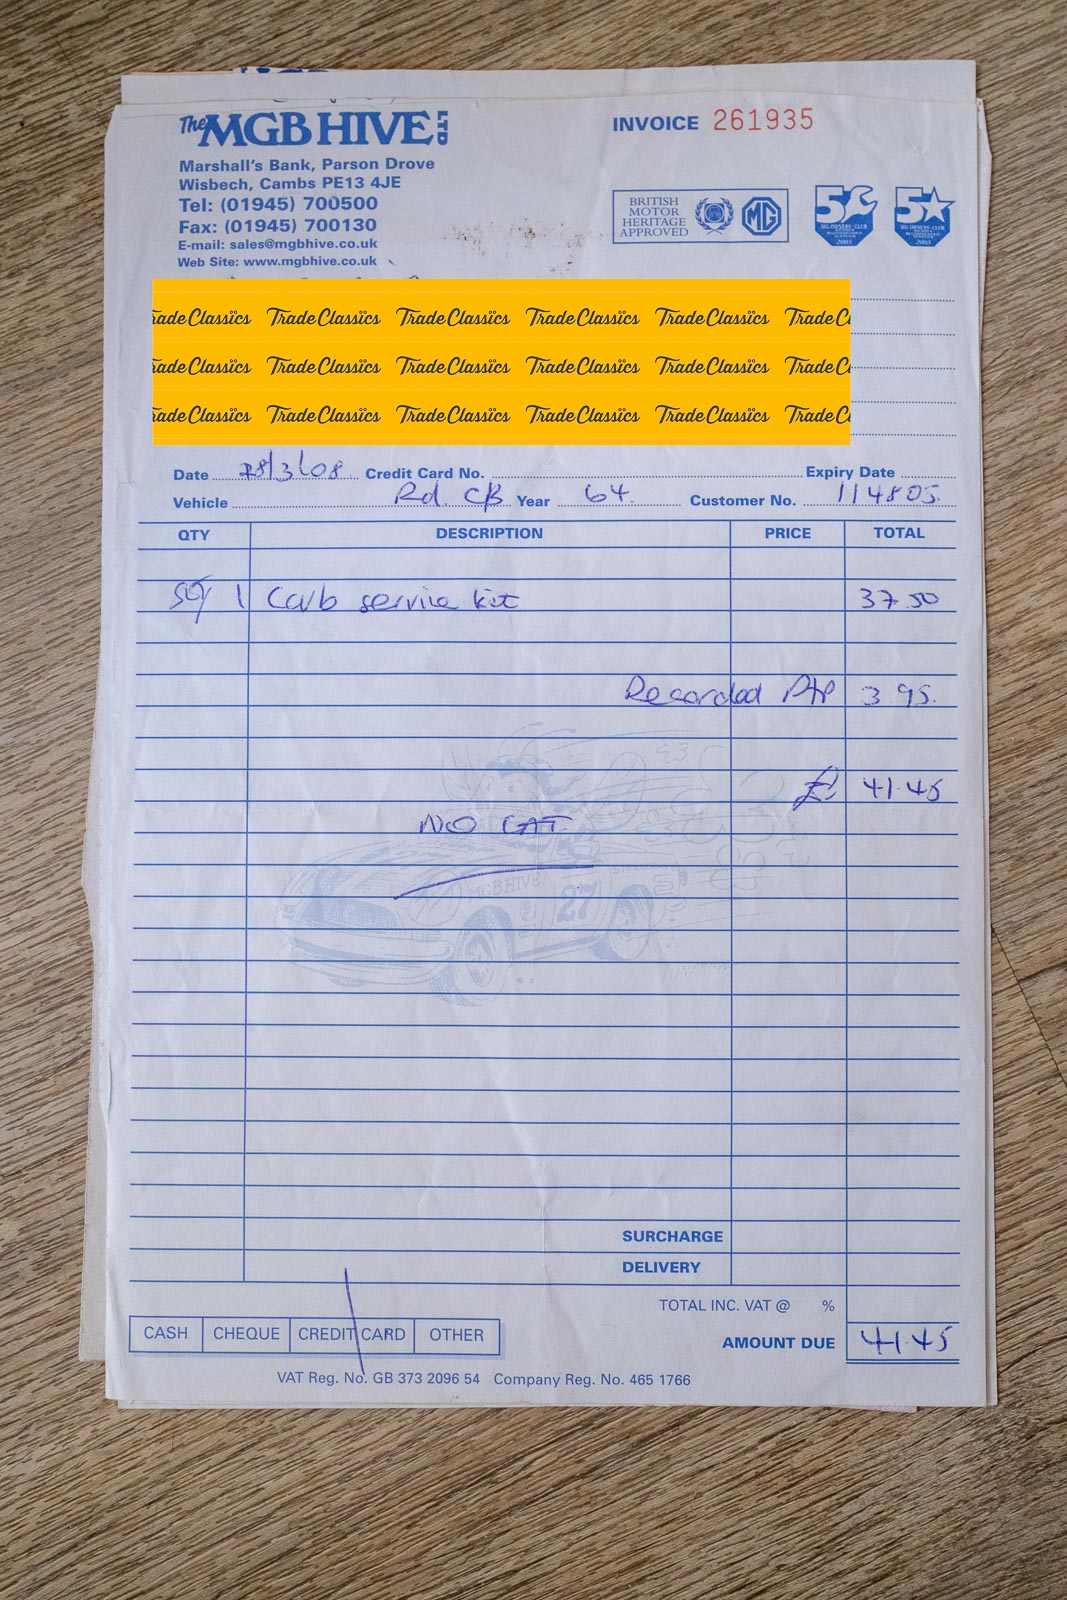 The MGB HIVE LTD
INVOICE 261935
Marshall's Bank, Parson Drove
Wisbech, Cambs PE13 4JE
Tel: (01945) 700500
Fax: (01945) 700130
E-mail: sales@mgbhive.co.uk
Web Site: www.mgbhive.co.uk
BRITISH MOTOR HERITAGE APPROVED MG
5 MG OWNERS' CLUB 2003
5 MG OWNERS' CLUB 2003
rade Classics Trade Classics Trade Classics Trade Classics Trade Classics Trade C
rade Classics Trade Classics Trade Classics Trade Classics Trade Classics Trade C
rade Classics Trade Classics Trade Classics Trade Classics Trade Classics Trade C
Date 28/3/08 Credit Card No. Expiry Date
Vehicle Rd. CB Year 64. Customer No. 114805.
QTY DESCRIPTION PRICE TOTAL
1 Carb service kit 37.50
Recorded P+P 3 95.
£ 41.45
NO CAT
MGB HIVE 27
SURCHARGE
DELIVERY
TOTAL INC. VAT @ %
CASH CHEQUE CREDIT CARD OTHER
AMOUNT DUE 41.45
VAT Reg. No. GB 373 2096 54 Company Reg. No. 465 1766